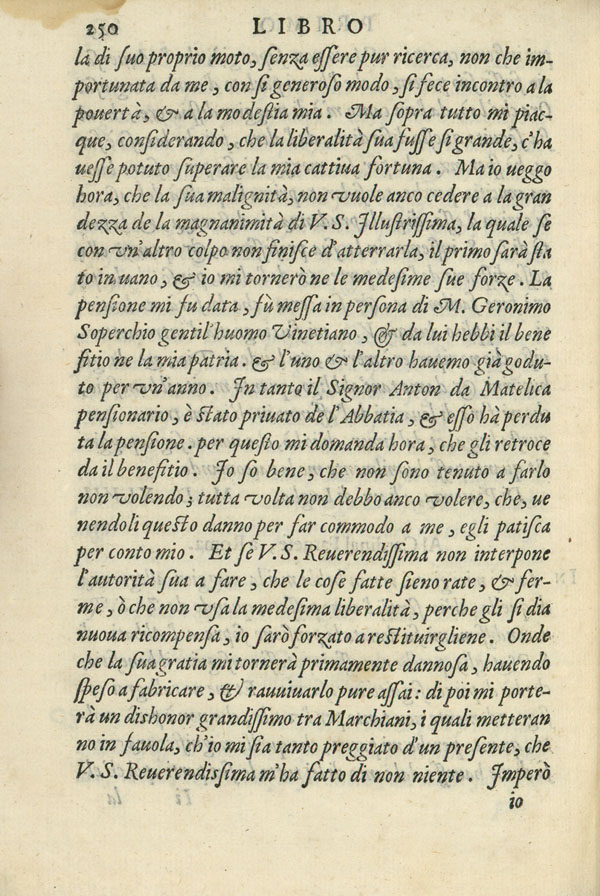 250 LIBRO
la di suo proprio moto, senza essere pur ricerca, non che im-
portunata da me, con si generoso modo, si fece incontro a la
pouertà, & a la modestia mia. Ma sopra tutto mi piac-
que, considerando, che la liberalità sua fusse si grande, c'ha
uesse potuto superare la mia cattiua fortuna. Ma io ueggo
hora, che la sua malignità, non vuole anco cedere a la gran
dezza de la magnanimità di V. S. Illustrissima, la quale se
con vn'altro colpo non finisce d'atterrarla, il primo sarà sta
to in uano, & io mi tornerò ne le medesime sue forze. La
pensione mi fu data, fù messa in persona di M. Geronimo
Soperchio gentil'huomo Vinetiano, & da lui hebbi il bene
fitio ne la mia patria. & l'uno & l'altro hauemo già godu-
to per vn'anno. In tanto il Signor Anton da Matelica
pensionario, è stato priuato de l'Abbatia, & esso hà perdu
ta la pensione. per questo mi domanda hora, che gli retroce
da il benefitio. Io so bene, che non sono tenuto a farlo
non volendo; tutta volta non debbo anco volere, che, ue
nendoli questo danno per far commodo a me, egli patisca
per conto mio. Et se V. S. Reuerendissima non interpone
l'autorità sua a fare, che le cose fatte sieno rate, & fer-
me, ò che non vsa la medesima liberalità, perche gli si dia
nuoua ricompensa, io sarò forzato a restituirgliene. Onde
che la sua gratia mi tornerà primamente dannosa, hauendo
speso a fabricare, & rauuiuarlo pure assai: di poi mi porte-
rà un dishonor grandissimo tra Marchiani, i quali metteran
no in fauola, ch'io mi sia tanto preggiato d'un presente, che
V. S. Reuerendissima m'ha fatto di non niente. Imperò
io